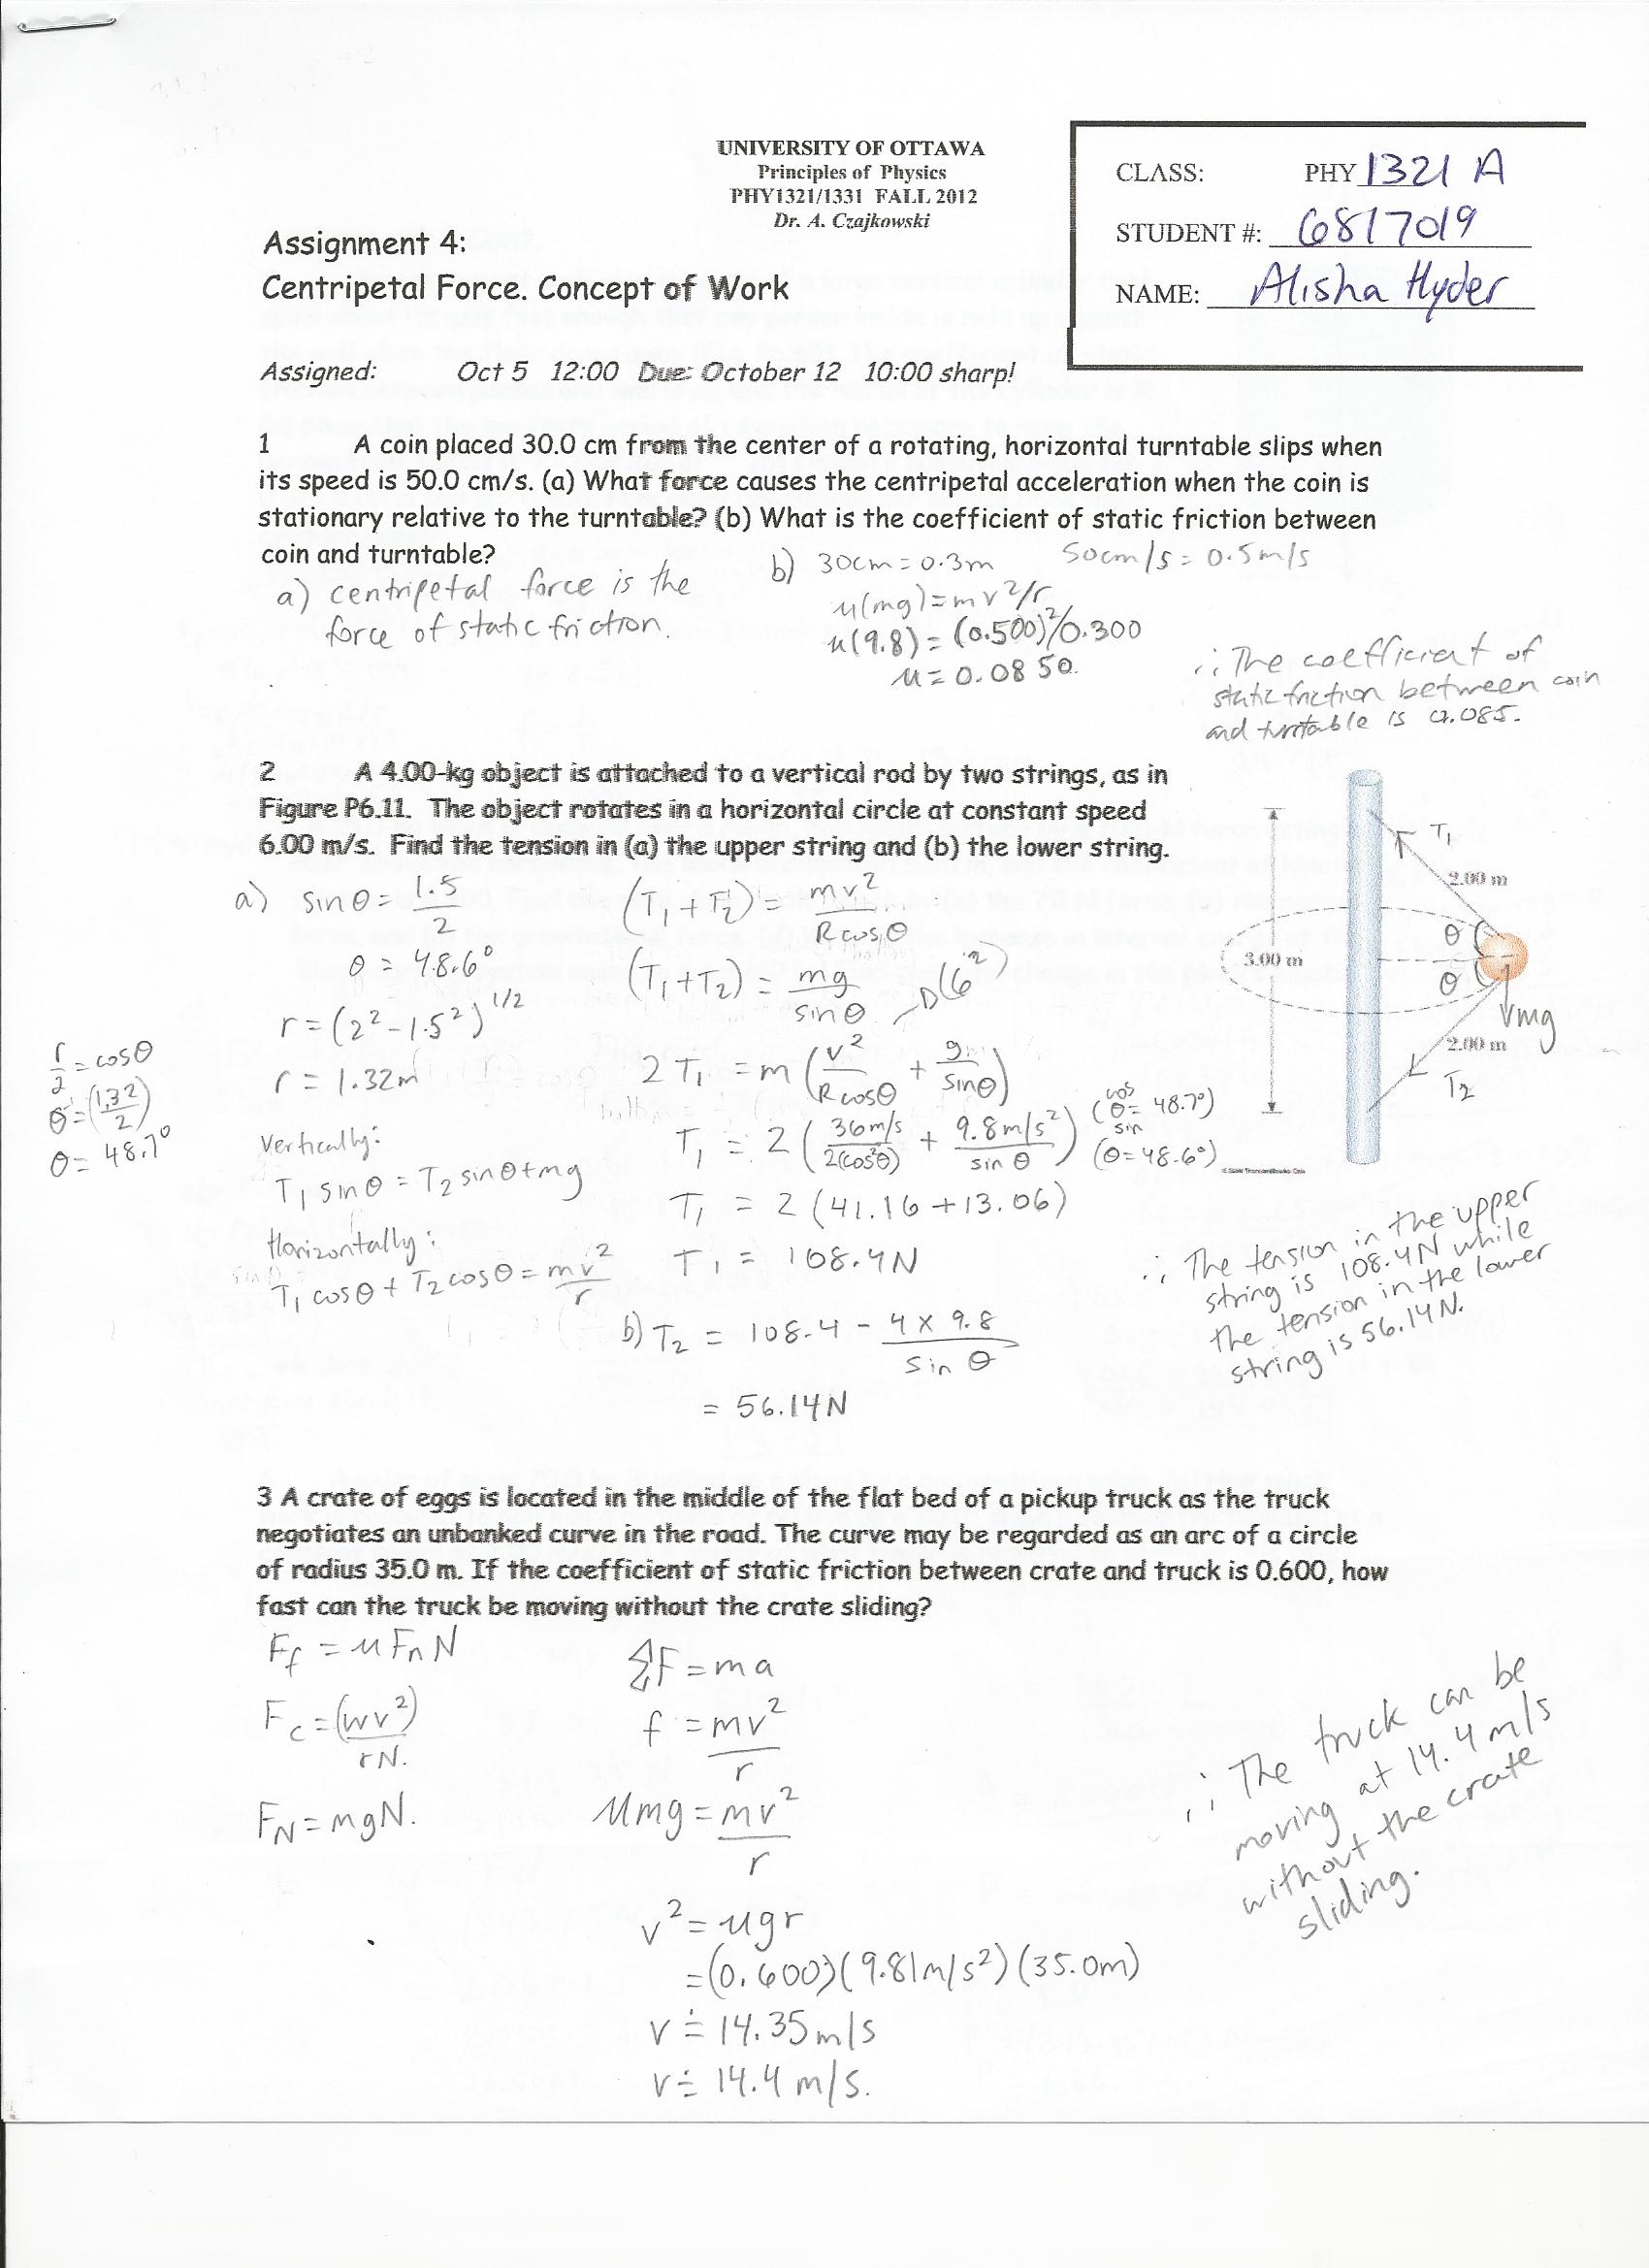 UNIVERSITY OF OTTAWA
Principles of Physics
PHY1321/1331 FALL 2012
Dr. A. Czajkowski
CLASS: PHY 1321 A
STUDENT #: 6817019
NAME: Alisha Hyder
Assignment 4:
Centripetal Force. Concept of Work
Assigned: Oct 5 12:00 Due: October 12 10:00 sharp!
1 A coin placed 30.0 cm from the center of a rotating, horizontal turntable slips when
its speed is 50.0 cm/s. (a) What force causes the centripetal acceleration when the coin is
stationary relative to the turntable? (b) What is the coefficient of static friction between
coin and turntable?
a) centripetal force is the
force of static friction.
b) 30cm = 0.3m 50cm/s = 0.5m/s
u(mg) = mv²/r
u(9.8) = (0.500)²/0.300
u = 0.0850
∴ The coefficient of
static friction between coin
and turntable is 0.085.
2 A 4.00-kg object is attached to a vertical rod by two strings, as in
Figure P6.11. The object rotates in a horizontal circle at constant speed
6.00 m/s. Find the tension in (a) the upper string and (b) the lower string.
a) sinθ = 1.5/2
θ = 48.6°
r = (2² - 1.5²)^1/2
r = 1.32m
r/2 = cosθ
θ = (1.32/2)
θ = 48.7°
Vertically:
T₁ sinθ = T₂ sinθ + mg
Horizontally:
T₁ cosθ + T₂ cosθ = mv²/r
(T₁ + T₂) = mv²/Rcosθ
(T₁ + T₂) = mg/sinθ
(6²)
2T₁ = m(v²/Rcosθ + g/sinθ)
T₁ = 2(36m/s/2(cos²θ) + 9.8m/s²/sinθ) (cos θ = 48.7°)
(sin θ = 48.6°)
T₁ = 2(41.16 + 13.06)
T₁ = 108.4N
b) T₂ = 108.4 - 4 × 9.8/sin θ
= 56.14N
T₁
2.00 m
θ
3.00 m
θ
mg
2.00 m
T₂
∴ The tension in the upper
string is 108.4N while
the tension in the lower
string is 56.14N.
3 A crate of eggs is located in the middle of the flat bed of a pickup truck as the truck
negotiates an unbanked curve in the road. The curve may be regarded as an arc of a circle
of radius 35.0 m. If the coefficient of static friction between crate and truck is 0.600, how
fast can the truck be moving without the crate sliding?
Ff = uFnN
Fc = (wv²)/rN.
FN = mgN.
ΣF = ma
f = mv²/r
umg = mv²/r
v² = ugr
= (0.600)(9.81m/s²)(35.0m)
v ≐ 14.35m/s
v ≐ 14.4 m/s.
∴ The truck can be
moving at 14.4 m/s
without the crate
sliding.